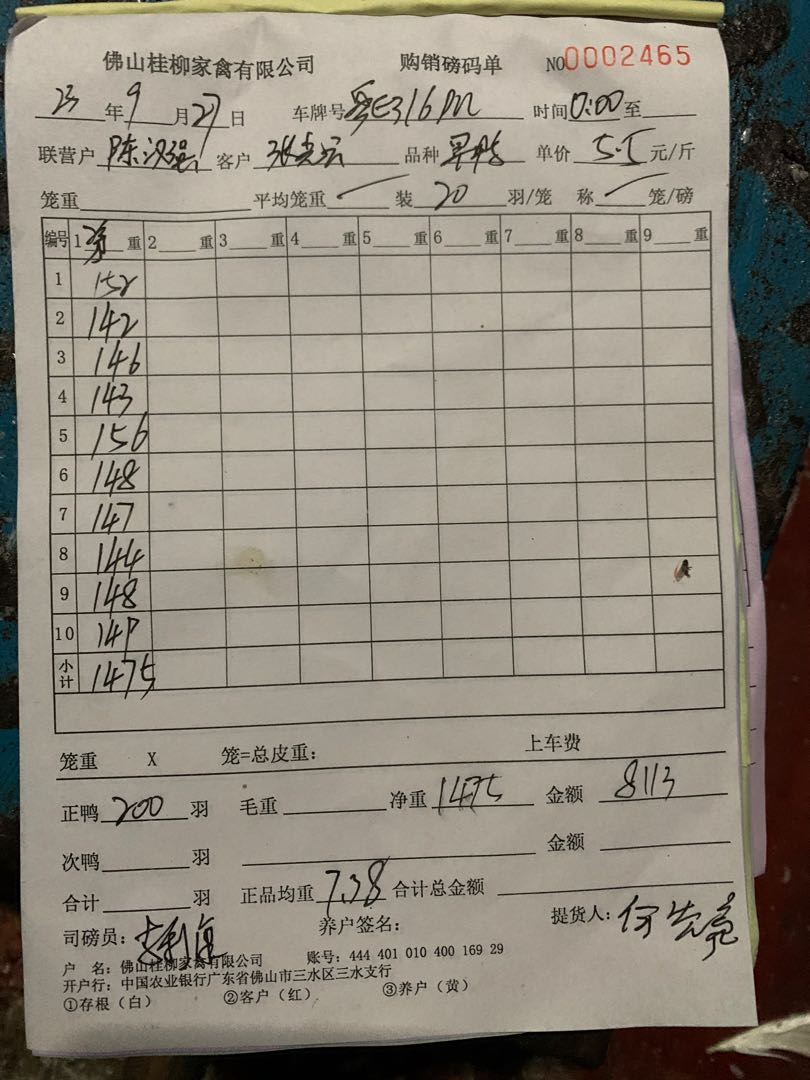 佛山桂柳家禽有限公司 购销磅码单 NO0002465
23年9月27日 车牌号粤E316M 时间0:00至
联营户 陈汉强 客户 张 品种 单价 5.5 元/斤
笼重 平均笼重 装 20 羽/笼 称 笼/磅
编号 1 净 重 2 重 3 重 4 重 5 重 6 重 7 重 8 重 9 重
1 152
2 142
3 146
4 143
5 156
6 148
7 147
8 144
9 148
10 149
小计 1475
笼重 X 笼=总皮重: 上车费
正鸭 200 羽 毛重 净重 1475 金额 8113
次鸭 羽 金额
合计 羽 正品均重 7.38 合计总金额
司磅员: 养户签名: 提货人: 何
户 名: 佛山桂柳家禽有限公司 账号: 444 401 010 400 169 29
开户行: 中国农业银行广东省佛山市三水区三水支行
①存根（白） ②客户（红） ③养户（黄）